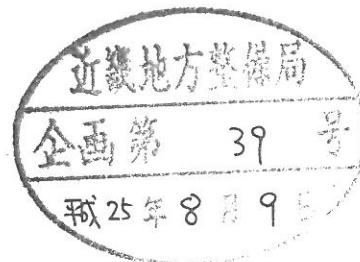 近畿地方整備局
企画第 39 号
平成 25 年 8 月 9 日